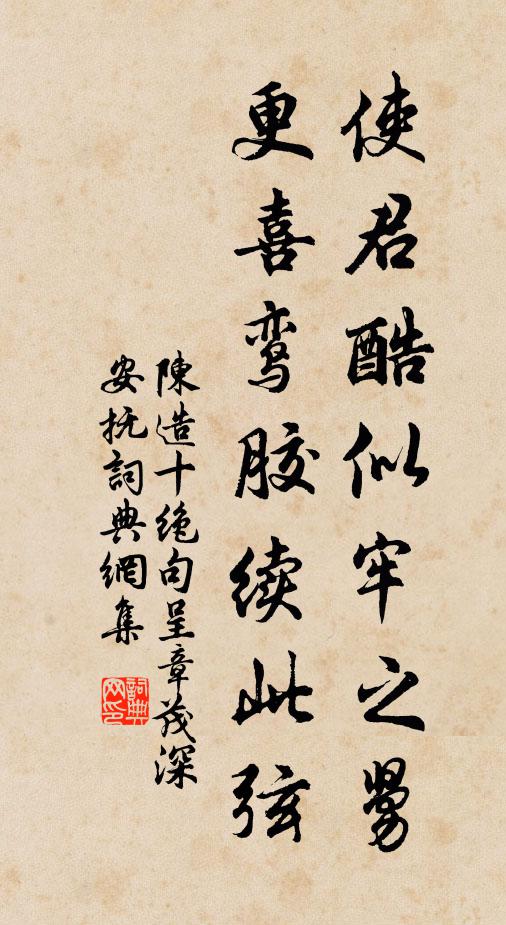 使君酷似牢之舅
更喜鸾胶续此弦
陳造十绝句呈章茂深
安抚詞典網集
詞典网印